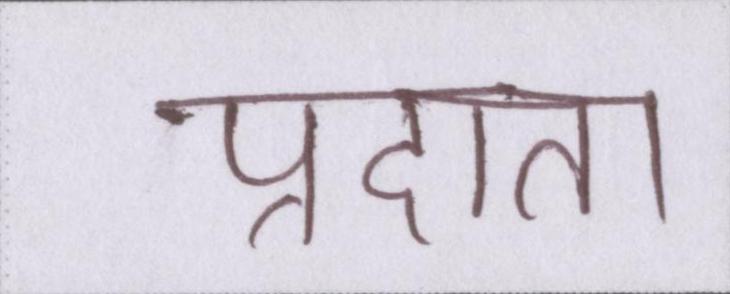 प्रदाता